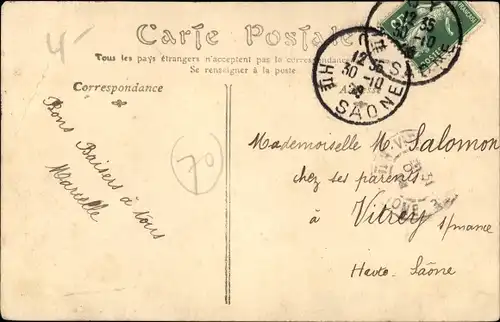 Carte Postale
Tous les pays étrangers n'acceptent pas la correspondance
Se renseigner à la poste
Correspondance
Bons Baisers à tous
Marcelle
70
12 35
30 -10
SAÔNE
12 35
30 -10
Mademoiselle M. Salomon
chez ses parents
à Vitrey s/mance
Haute-Saône